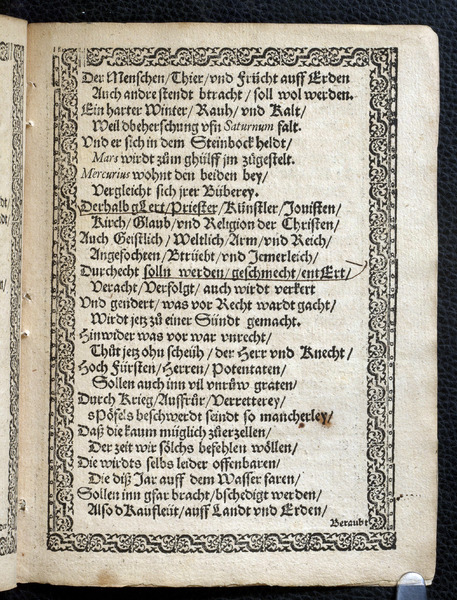 Der Menschen/Thier/vnd Frücht auff Erden
Auch andre stendt btracht/soll wol werden.
Ein harter Winter/Rauh/vnd Kalt/
Weil dbeherschung vfn Saturnum falt.
Vnd er sich in dem Steinbock heldt/
Mars wirdt zům ghülff jm zůgestelt.
Mercurius wohnt den beiden bey/
Vergleicht sich jrer Büberey.
Derhalb gLert/Priester/Künstler/Jouisten/
Kirch/Glaub/vnd Religion der Christen/
Auch Geistlich/Weltlich/Arm/vnd Reich/
Angefochten/Btrüebt/vnd Jemerlich/
Durchecht solln werden/geschmecht/entErt/
Veracht/Verfolgt/auch wirdt verkert
Vnd gendert/was vor Recht wardt gacht/
Wirdt jetz zů einer Sündt gemacht.
Hinwider was vor war vnrecht/
Thůt jetz ohn scheüh/der Herr vnd Knecht/
Hoch Fürsten/Herren/Potentaten/
Sollen auch inn vil vnrůw graten/
Durch Krieg/Auffrůr/Verretterey/
sPöfels beschwerdt seindt so mancherley/
Daß die kaum müglich zůerzellen/
Der zeit wir sölchs befehlen wöllen/
Die wirdts selbs leider offenbaren/
Die diß Jar auff dem Wasser faren/
Sollen inn gfar bracht/bschedigt werden/
Also dKaufleüt/auff Landt vnd Erden/
Beraubt